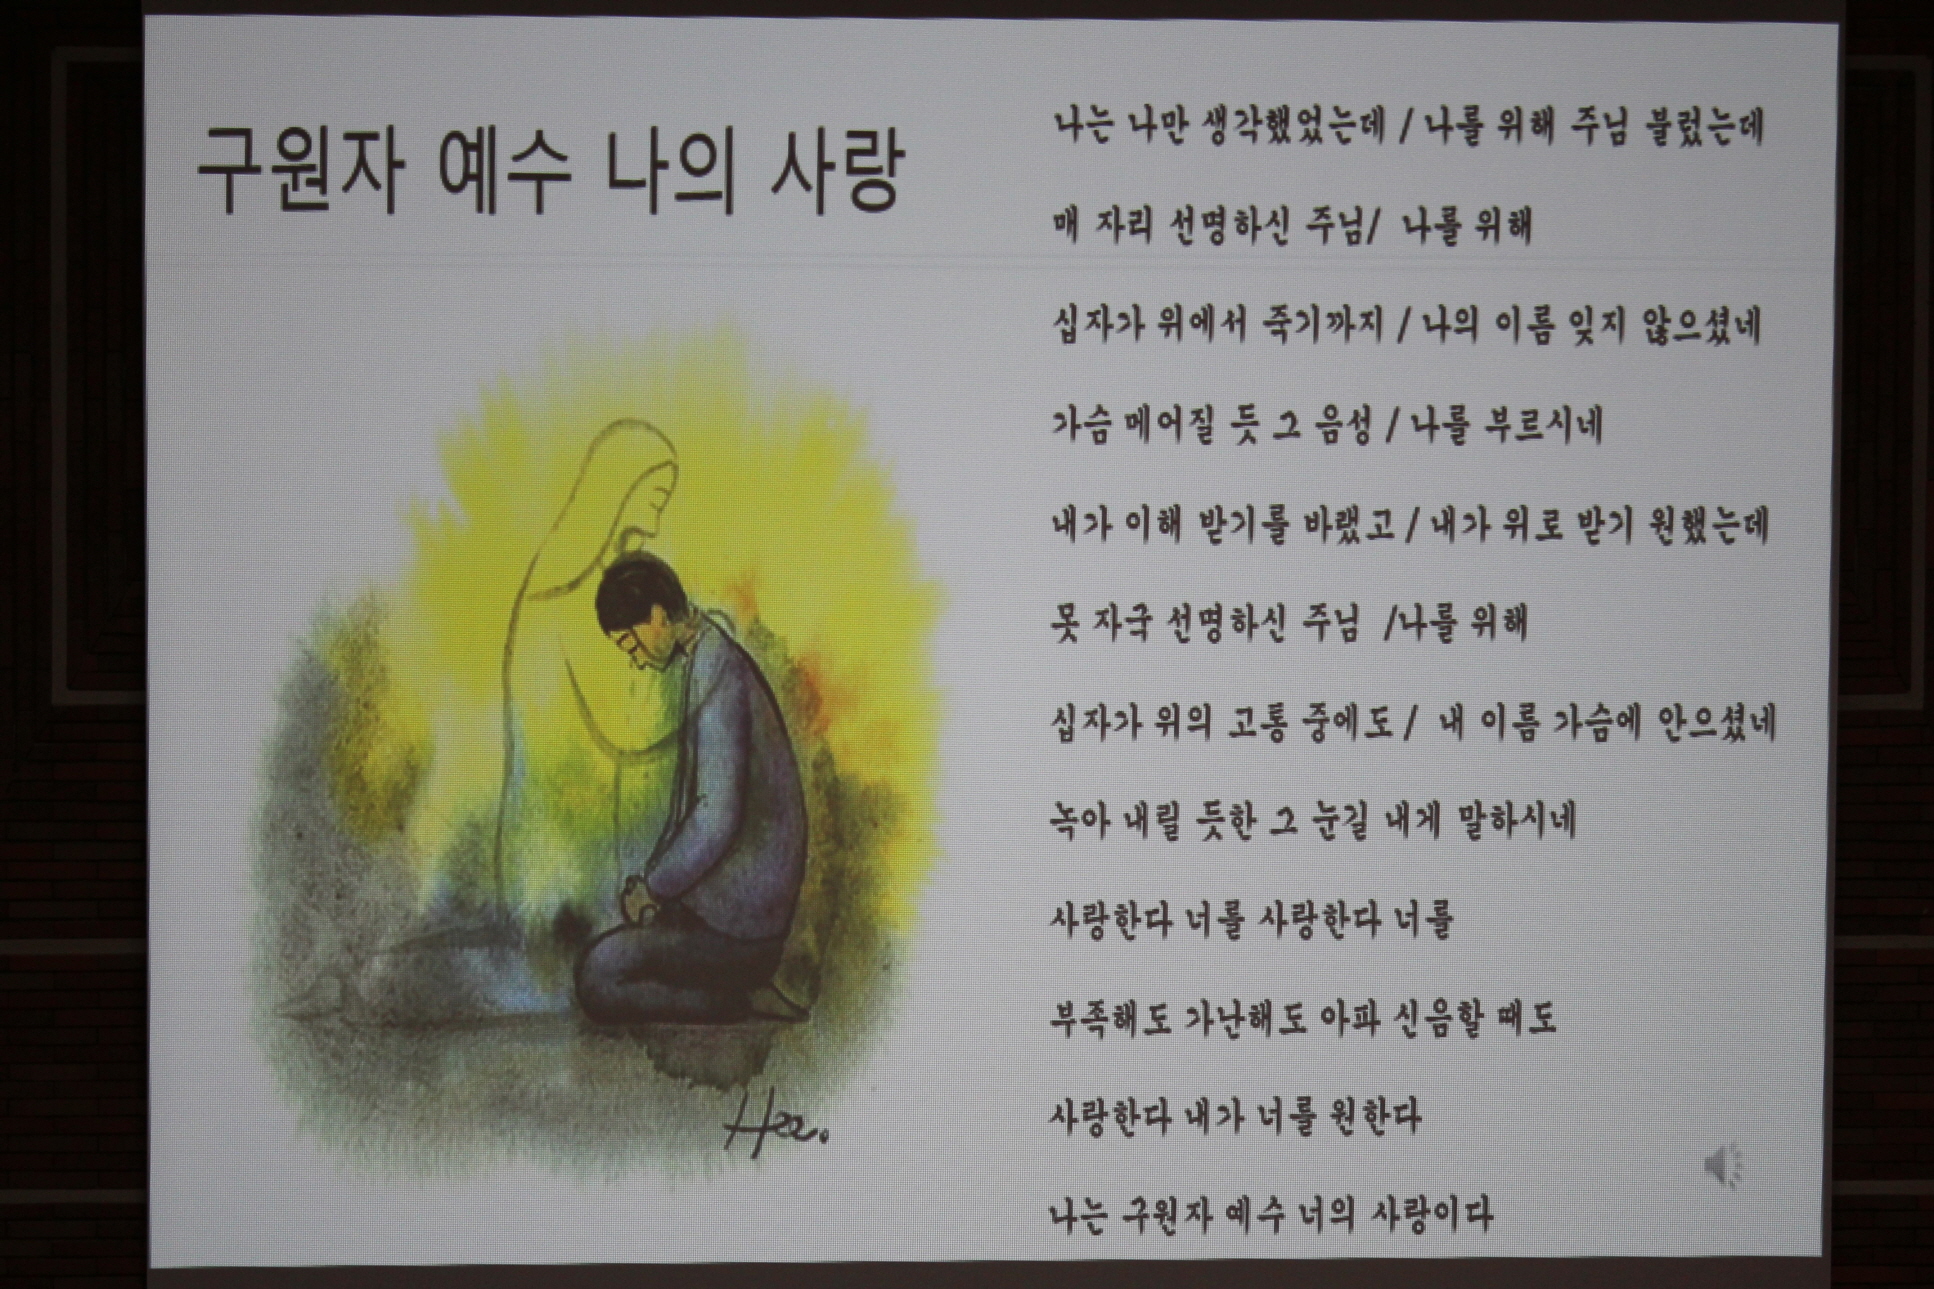 구원자 예수 나의 사랑
나는 나만 생각했었는데 / 나를 위해 주님 불렀는데
매 자리 선명하신 주님/ 나를 위해
십자가 위에서 죽기까지 / 나의 이름 잊지 않으셨네
가슴 메어질 듯 그 음성 / 나를 부르시네
내가 이해 받기를 바랬고 / 내가 위로 받기 원했는데
못 자국 선명하신 주님 /나를 위해
십자가 위의 고통 중에도 / 내 이름 가슴에 안으셨네
녹아 내릴 듯한 그 눈길 내게 말하시네
사랑한다 너를 사랑한다 너를
부족해도 가난해도 아파 신음할 때도
사랑한다 내가 너를 원한다
나는 구원자 예수 너의 사랑이다